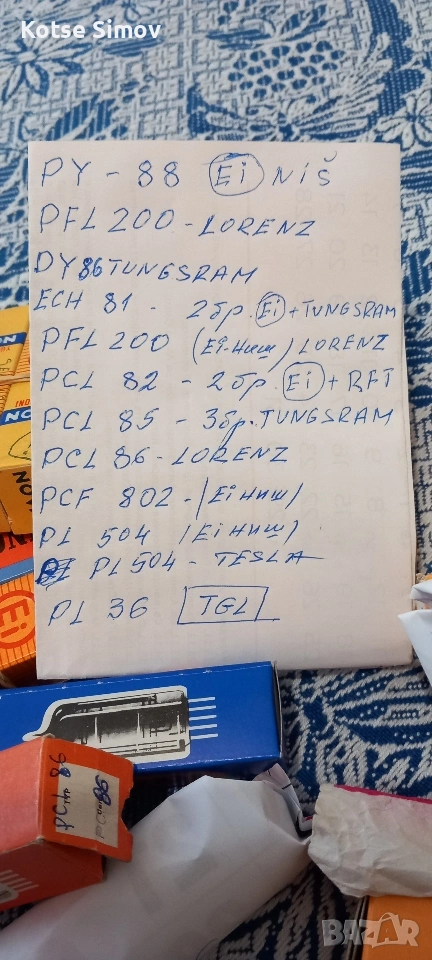 Kotse Simov
PY - 88 (Ei) NIŠ
PFL 200 - LORENZ
DY86 TUNGSRAM
ECH 81 - 2бр. (Ei) + TUNGSRAM
PFL 200 (Ei-Ниш) LORENZ
PCL 82 - 2бр. (Ei) + RFT
PCL 85 - 3бр. TUNGSRAM
PCL 86 - LORENZ
PCF 802 - /Ei Ниш/
PL 504 /Ei Ниш/
PL 504 - TESLA
PL 36 TGL
Ei
PCL 86
BAZAR